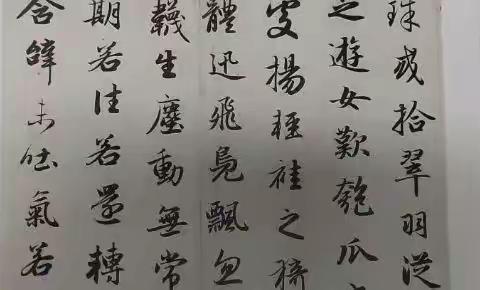 珠或拾翠羽從
之遊女歎匏瓜
處揚輕袿之猗
體迅飛鳧飄忽
韈生塵動無常
期若往若還轉
含辭未吐氣若